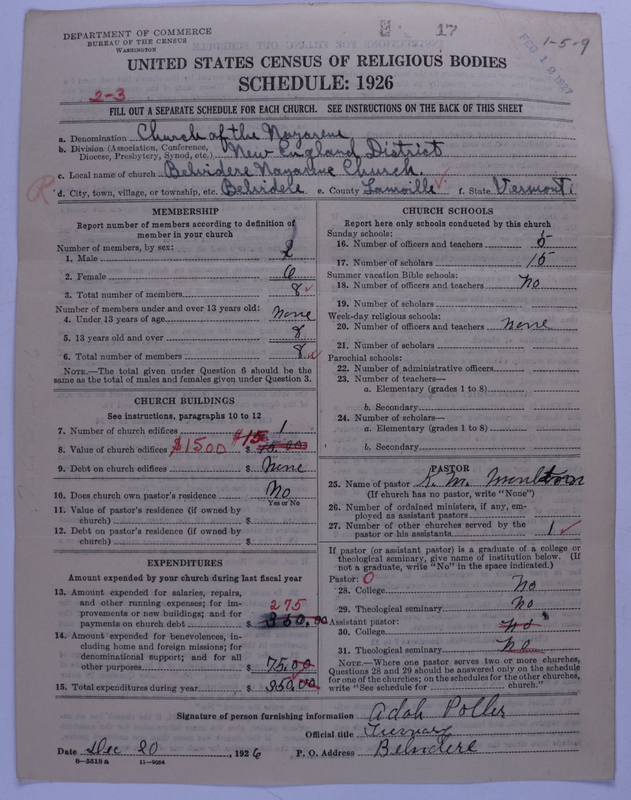 DEPARTMENT OF COMMERCE
BUREAU OF THE CENSUS
WASHINGTON
17
FEB 19 1927
1-5-9
UNITED STATES CENSUS OF RELIGIOUS BODIES
SCHEDULE: 1926
2-3
FILL OUT A SEPARATE SCHEDULE FOR EACH CHURCH. SEE INSTRUCTIONS ON THE BACK OF THIS SHEET
a. Denomination Church of the Nazarene
b. Division (Association, Conference, Diocese, Presbytery, Synod, etc.) New England District
c. Local name of church Belvidere Nazarine Church.
d. City, town, village, or township, etc. Belvidere e. County Lamoille f. State Vermont
MEMBERSHIP
Report number of members according to definition of
member in your church
Number of members, by sex:
1. Male 2
2. Female 6
3. Total number of members 8
Number of members under and over 13 years old:
4. Under 13 years of age none
5. 13 years old and over 8
6. Total number of members 8
NOTE.—The total given under Question 6 should be the
same as the total of males and females given under Question 3.
CHURCH BUILDINGS
See instructions, paragraphs 10 to 12
7. Number of church edifices 1
8. Value of church edifices $1500 $15 $ 15.00
9. Debt on church edifices $ None
10. Does church own pastor's residence No
Yes or No
11. Value of pastor's residence (if owned by
church) $
12. Debt on pastor's residence (if owned by
church) $
EXPENDITURES
Amount expended by your church during last fiscal year
13. Amount expended for salaries, repairs,
and other running expenses; for im-
provements or new buildings; and for
payments on church debt $ 275 350.00
14. Amount expended for benevolences, in-
cluding home and foreign missions; for
denominational support; and for all
other purposes $ 75.00
15. Total expenditures during year $ 350.00
CHURCH SCHOOLS
Report here only schools conducted by this church
Sunday schools:
16. Number of officers and teachers 5
17. Number of scholars 15
Summer vacation Bible schools:
18. Number of officers and teachers no
19. Number of scholars
Week-day religious schools:
20. Number of officers and teachers none
21. Number of scholars
Parochial schools:
22. Number of administrative officers
23. Number of teachers—
a. Elementary (grades 1 to 8)
b. Secondary
24. Number of scholars—
a. Elementary (grades 1 to 8)
b. Secondary
PASTOR
25. Name of pastor K. M.
(If church has no pastor, write "None")
26. Number of ordained ministers, if any, em-
ployed as assistant pastors
27. Number of other churches served by the
pastor or his assistants 1
If pastor (or assistant pastor) is a graduate of a college or
theological seminary, give name of institution below. (If
not a graduate, write "No" in the space indicated.)
Pastor: 0
28. College No
29. Theological seminary No
Assistant pastor:
30. College no
31. Theological seminary no
NOTE.—Where one pastor serves two or more churches,
Questions 28 and 29 should be answered only on the schedule
for one of the churches; on the schedules for the other churches,
write "See schedule for church."
Signature of person furnishing information Adah Potter
Official title
Date Dec 20, 1926 P. O. Address Belvidere
8—5518 a 11—9054